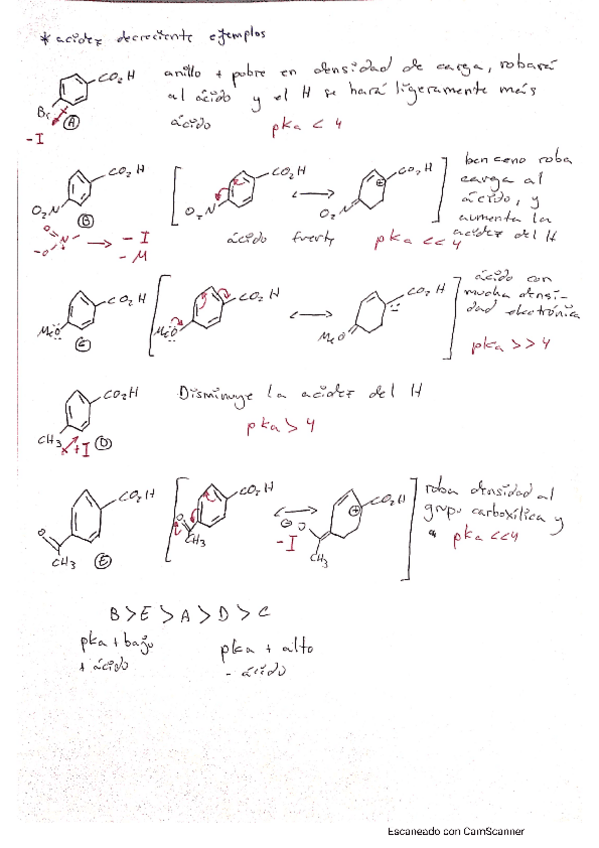 * acidez decreciente ejemplos
CO2H
Br
A
-I
anillo + pobre en densidad de carga, robará
al ácido y el H se hará ligeramente más
ácido pka < 4
CO2H
O2N
B
CO2H
O2N
CO2H
O2N
benceno roba
carga al
ácido, y
aumenta la
acidez del H
-I
-M
ácido fuerte pka << 4
CO2H
MeO
C
CO2H
MeO
CO2H
MeO
ácido con
mucha densi-
dad electrónica
pka >> 4
CO2H
CH3 +I D
Disminuye la acidez del H
pka > 4
CO2H
O
CH3 E
CO2H
O
CH3
CO2H
-I
CH3
roba densidad al
grupo carboxílico y
pka << 4
B > E > A > D > C
pka + bajo
+ ácido
pka + alto
- ácido
Escaneado con CamScanner